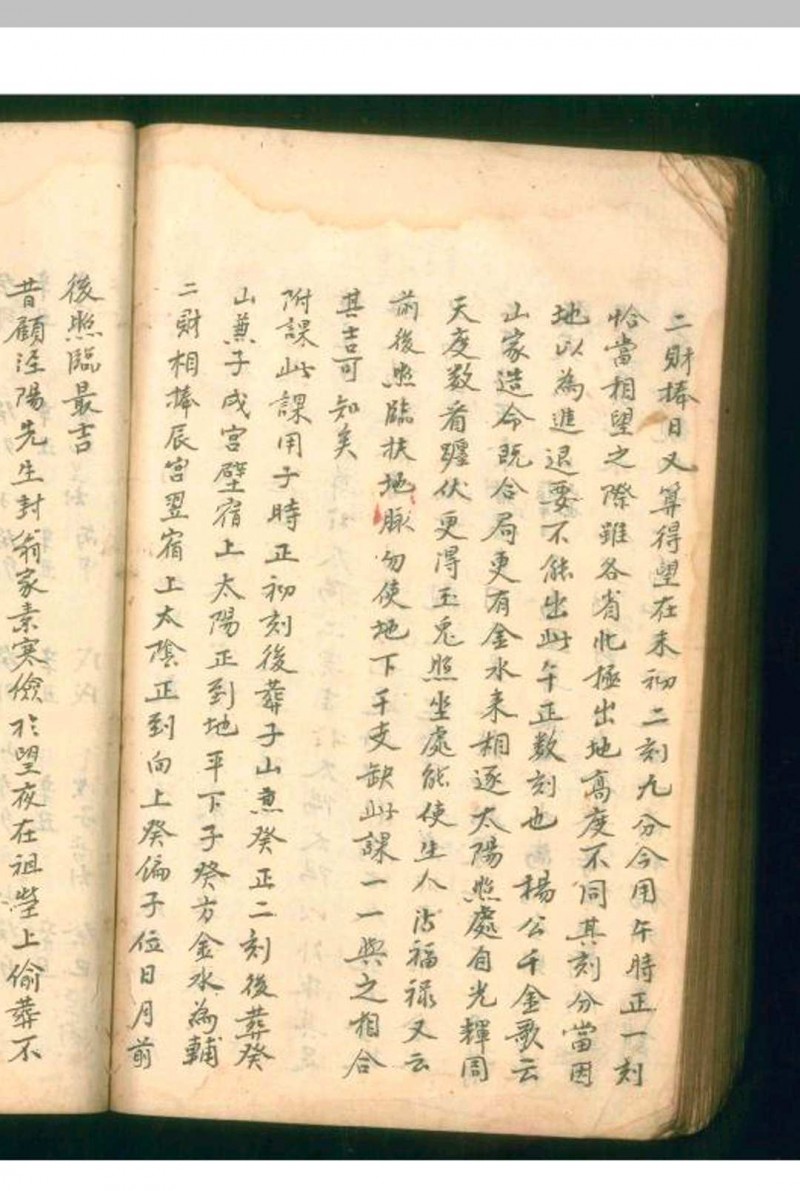 二財捧日又算得望在未初二刻九分今用午時正一刻
恰當相望之際雖各省北極出地高度不同其刻分當因
地以為進退要不能出此午正数刻也　楊公千金歌云
山家造命既合局更有金水来相逐太陽照處自光輝周
天度数看躔伏更得玉兎照坐處能使生人沾福禄又云
前後照臨扶地脈勿使地下干支缺此課一一與之相合
其吉可知矣
附課此課用子時正初刻後葬子山兼癸正二刻後葬癸
山兼子戌宮壁宿上太陽正到地平下子癸方金水為輔
二財相捧辰宮翌宿上太陰正到向上癸偏子位日月前
後照臨最吉
昔顧涇陽先生封翁家素寒儉於望夜在祖塋上偷葬不